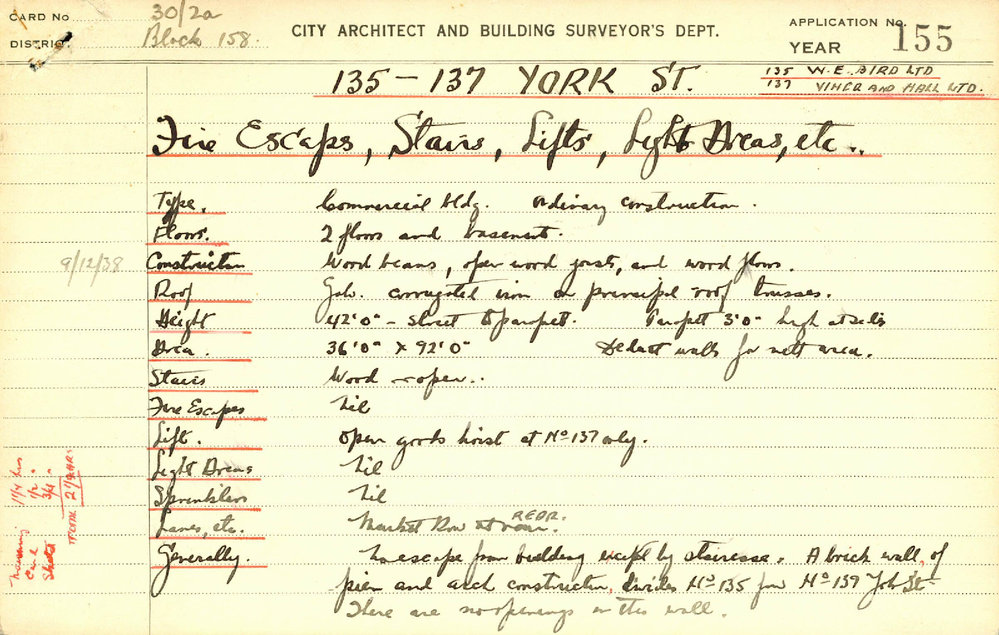 CARD No 30/2a
DISTRICT Block 158.
CITY ARCHITECT AND BUILDING SURVEYOR'S DEPT.
APPLICATION No. 155
YEAR
135 – 137 YORK ST.
135 W.E. BIRD LTD
137 VINER AND HALL LTD.
Fire Escaps, Stairs, Lifts, Light Areas, etc..
Type. Commercial bldg. Ordinary construction.
Floors. 2 floors and basement.
9/12/38
Construction Wood beams, open wood joists, and wood floors.
Roof Galv. corrugated iron on principal roof trusses.
Height 42'0" – Street to parapet. Parapet 3'0" high at sides
Area. 36'0" x 92'0" Deduct walls for nett area.
Stairs Wood – open..
Fire Escapes Nil
Lift. Open goods hoist at No 137 only.
Light Areas Nil
Sprinklers Nil
Lanes, etc. Market Row at rear. REAR.
Generally. No escape from building except by staircase. A brick wall, of
piers and arch construction, divides No 135 from No 137 York St
There are no openings in this wall.
Card 1/2
Sketch 3/4
TOTAL 2 1/2 HRS